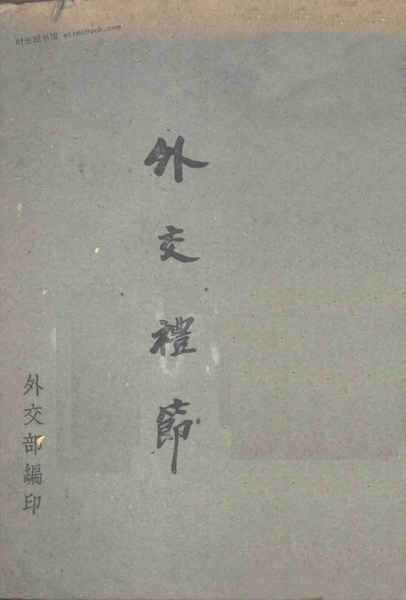 外交禮節
外交部編印